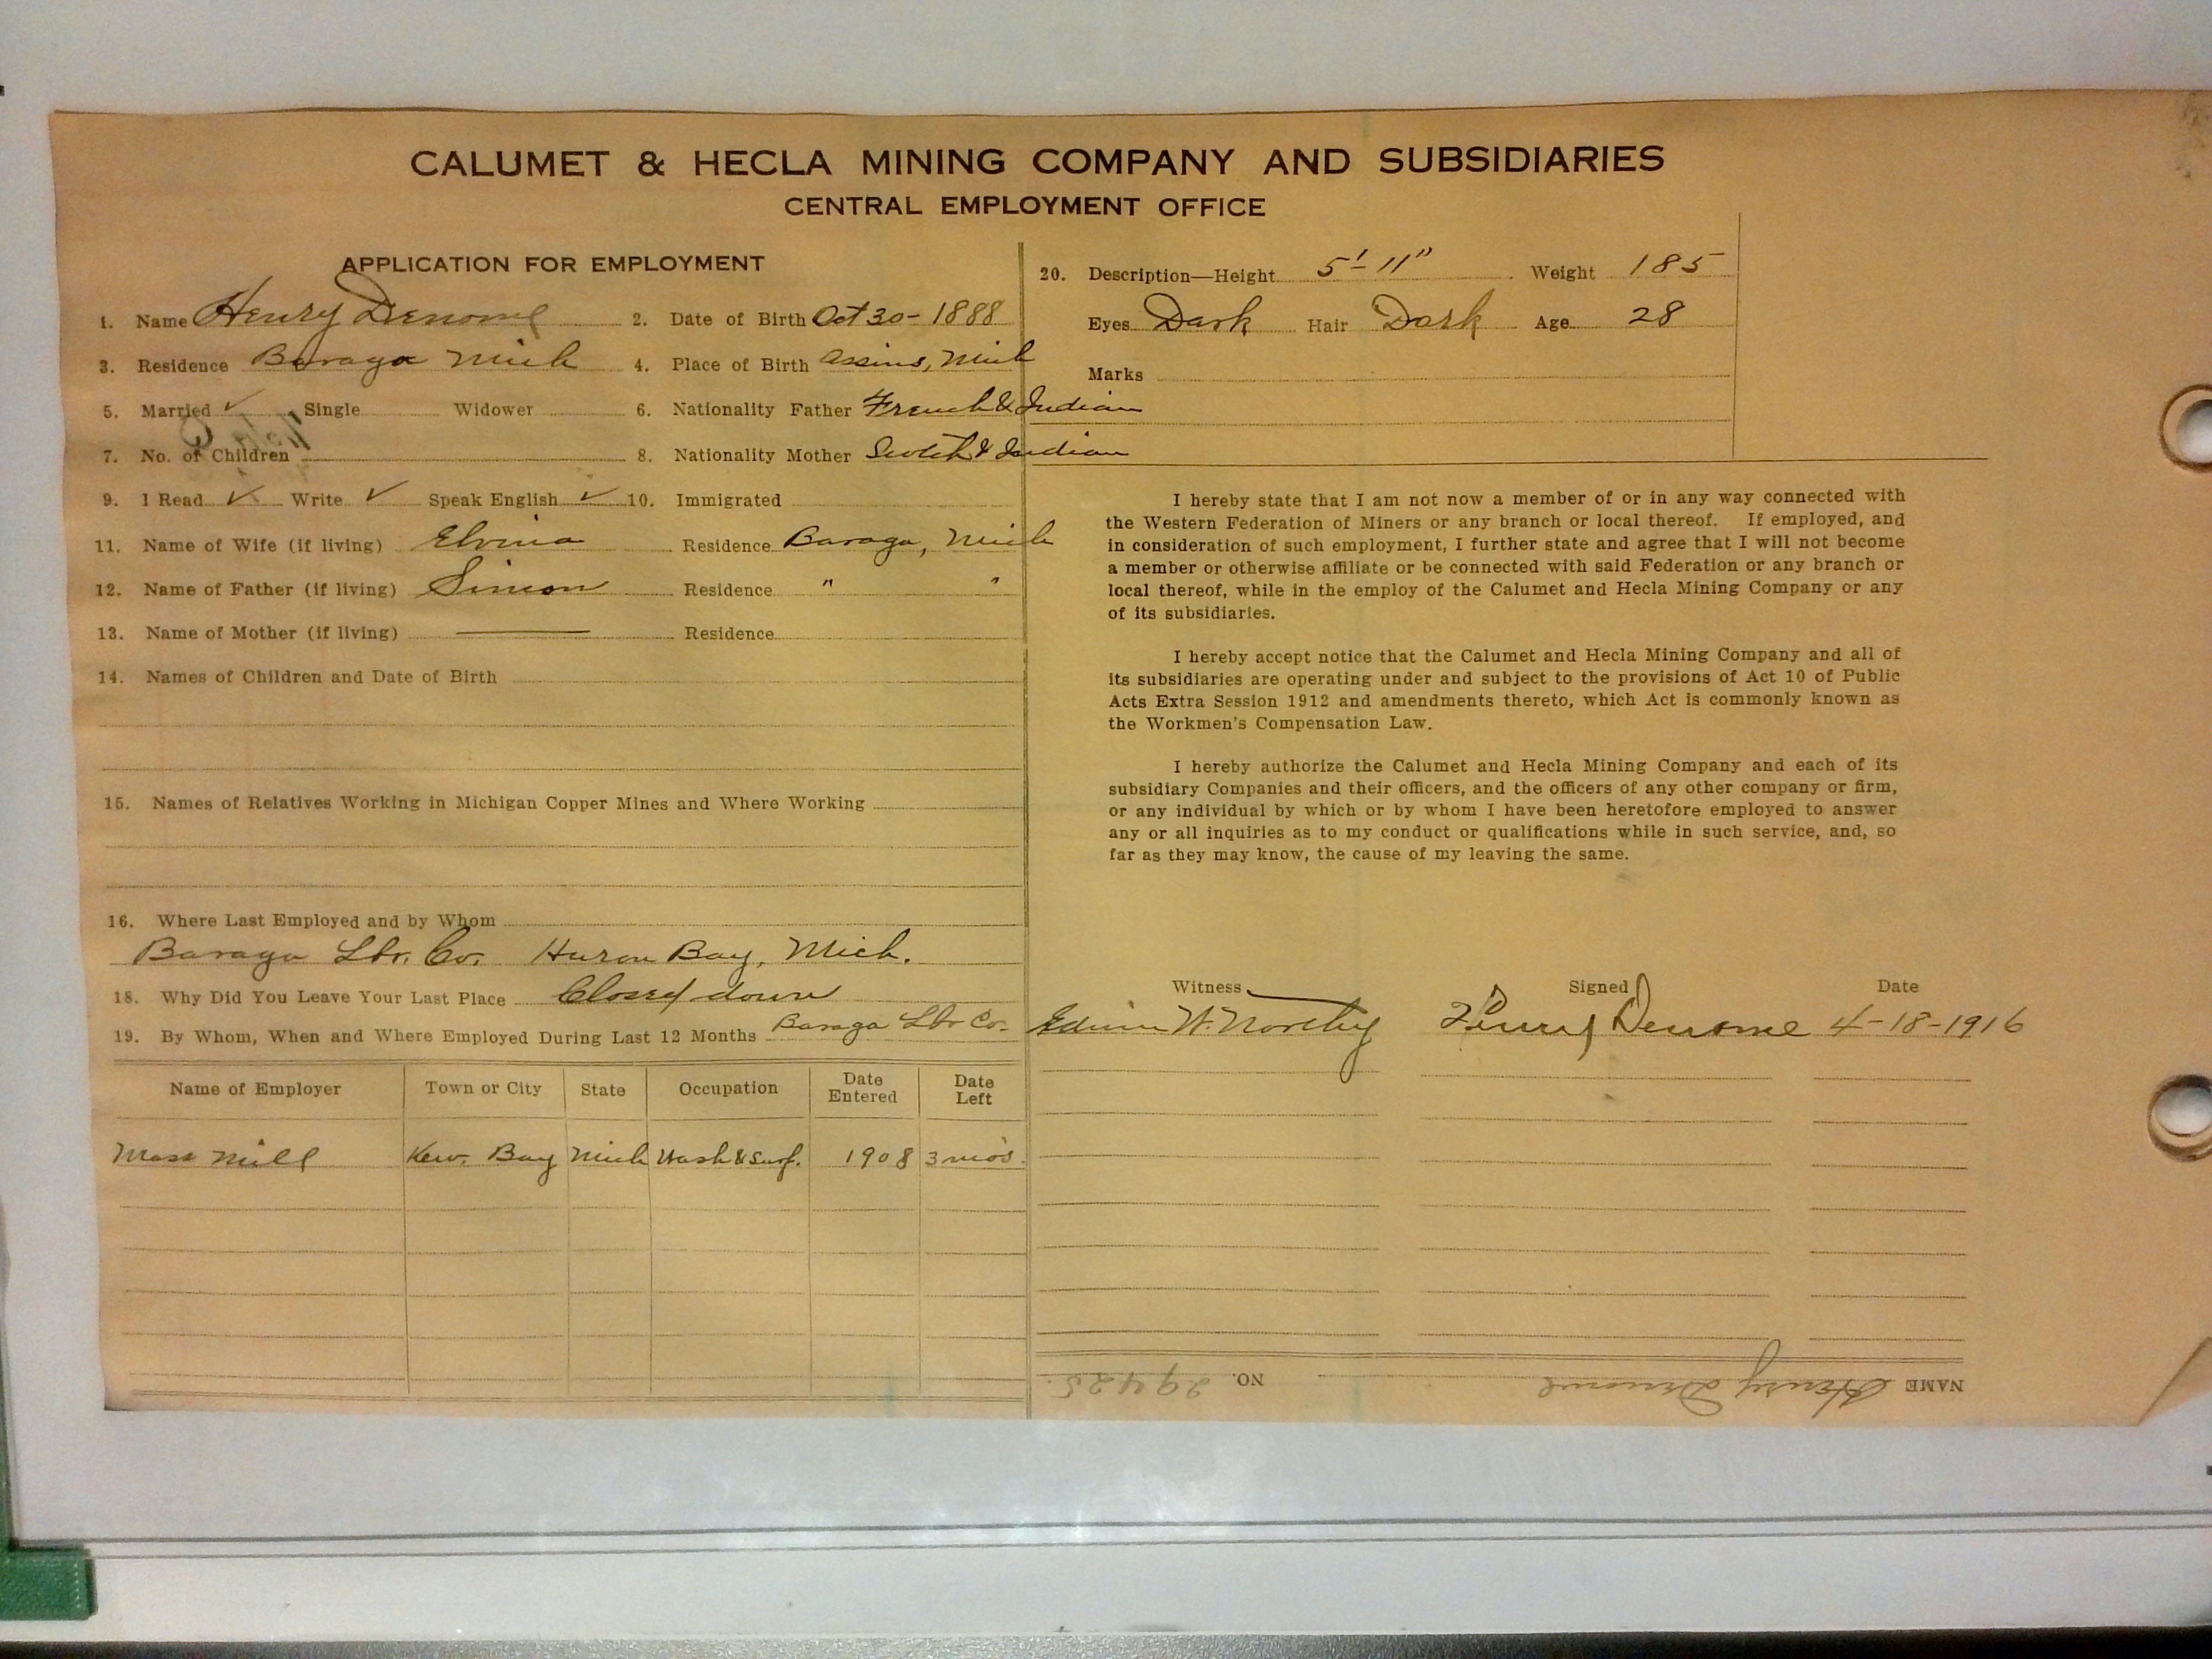 CALUMET & HECLA MINING COMPANY AND SUBSIDIARIES
CENTRAL EMPLOYMENT OFFICE
APPLICATION FOR EMPLOYMENT
1. Name Henry Denome 2. Date of Birth Oct 30 - 1888
3. Residence Baraga Mich 4. Place of Birth Assins, Mich
5. Married ✓ Single Widower 6. Nationality Father French & Indian
7. No. of Children 8. Nationality Mother Scotch & Indian
9. I Read ✓ Write ✓ Speak English ✓ 10. Immigrated
11. Name of Wife (if living) Elvina Residence Baraga, Mich
12. Name of Father (if living) Simon Residence " "
13. Name of Mother (if living) — Residence
14. Names of Children and Date of Birth
15. Names of Relatives Working in Michigan Copper Mines and Where Working
16. Where Last Employed and by Whom
Baraga Lbr. Co. Huron Bay, Mich.
18. Why Did You Leave Your Last Place Closed down
19. By Whom, When and Where Employed During Last 12 Months Baraga Lbr Co.
Name of Employer Town or City State Occupation Date Entered Date Left
Mass Mill Kew. Bay Mich Wash & Surf. 1908 3 mos.
20. Description—Height 5'-11" Weight 185
Eyes Dark Hair Dark Age 28
Marks
I hereby state that I am not now a member of or in any way connected with
the Western Federation of Miners or any branch or local thereof. If employed, and
in consideration of such employment, I further state and agree that I will not become
a member or otherwise affiliate or be connected with said Federation or any branch or
local thereof, while in the employ of the Calumet and Hecla Mining Company or any
of its subsidiaries.
I hereby accept notice that the Calumet and Hecla Mining Company and all of
its subsidiaries are operating under and subject to the provisions of Act 10 of Public
Acts Extra Session 1912 and amendments thereto, which Act is commonly known as
the Workmen's Compensation Law.
I hereby authorize the Calumet and Hecla Mining Company and each of its
subsidiary Companies and their officers, and the officers of any other company or firm,
or any individual by which or by whom I have been heretofore employed to answer
any or all inquiries as to my conduct or qualifications while in such service, and, so
far as they may know, the cause of my leaving the same.
Witness Signed Date
Edwin W. Northey Henry Denome 4-18-1916
NAME Henry Denome NO. 29425